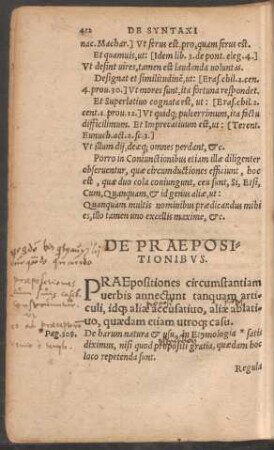 412 DE SYNTAXI
nac. Machar.] Vt ferus est, pro, quam ferus est.
Et quamuis, ut: [Idem lib. 3. de pont. eleg. 4.]
Vt desint uires, tamen est laudanda uoluntas.
Designat et similitudinē, ut: [Eras. chil. 1. cen.
4. prou. 30.] Vt mores sunt, ita fortuna respondet.
Et Superlatiuo cognata est, ut: [Eras. chil.
cent. 1. prou. 12.] Vt quidq; pulcerrimum, ita fictu
difficilimum. Et Imprecatiuum est, ut: [Terent.
Eunuch. act. 2. sc. 3.]
Vt illum dij, deæq; omnes perdant, &c.
Porro in Coniunctionibus etiam illæ diligenter
obseruentur, quæ circumductiones efficiunt, hoc
est, quæ duo cola coniungunt, ceu sunt, Si, Etsi,
Cum, Quanquam, & id genus aliæ, ut:
Quanquam multis nominibus prædicandus mihi
es, illo tamen uno excellis maxime, &c.
DE PRAEPOSI-
TIONIBVS.
PRAEpositiones circumstantiam
uerbis annectunt tanquam arti-
culi, idq; aliæ accusatiuo, aliæ ablati-
uo, quædam etiam utroq; casu.
De harum natura & usu, in Etymologia * satis
diximus, nisi quod propositi gratia, quædam hoc
loco repetenda sunt.
* Pag.
Regula